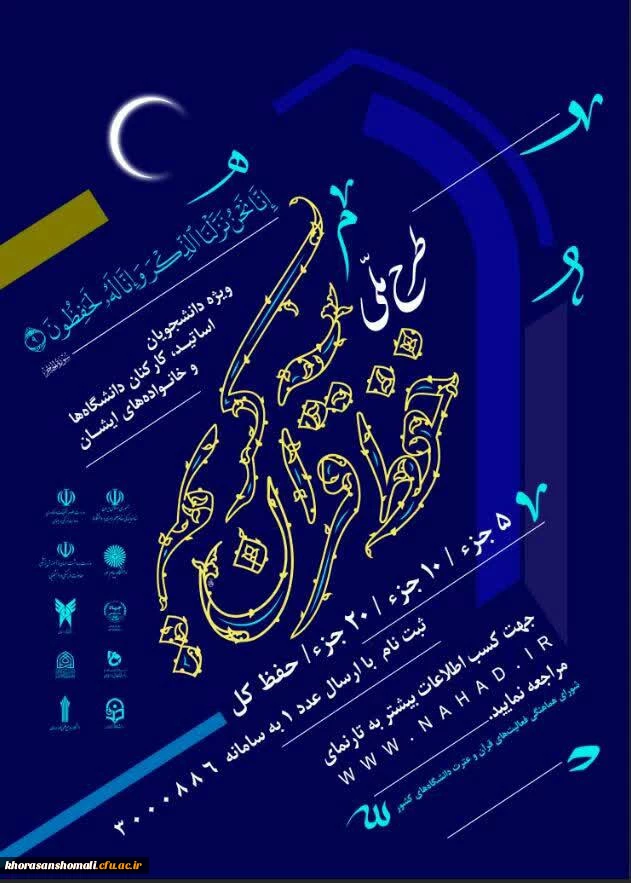 طرح ملّی
حفظ قرآن کریم
إِنَّا نَحْنُ نَزَّلْنَا الذِّكْرَ وَإِنَّا لَهُ لَحَافِظُونَ ﴿٩﴾
ویژه دانشجویان
اساتید، کارکنان دانشگاه‌ها
و خانواده‌های ایشان
۵ جزء / ۱۰ جزء / ۲۰ جزء / حفظ کل
ثبت نام با ارسال عدد ۱ به سامانه ۳۰۰۰۸۸۶
جهت کسب اطلاعات بیشتر به تارنمای
WWW.NAHAD.IR
مراجعه نمایید.
شورای هماهنگی فعالیت‌های قرآن و عترت دانشگاه‌های کشور
khorasanshomali.cfu.ac.ir